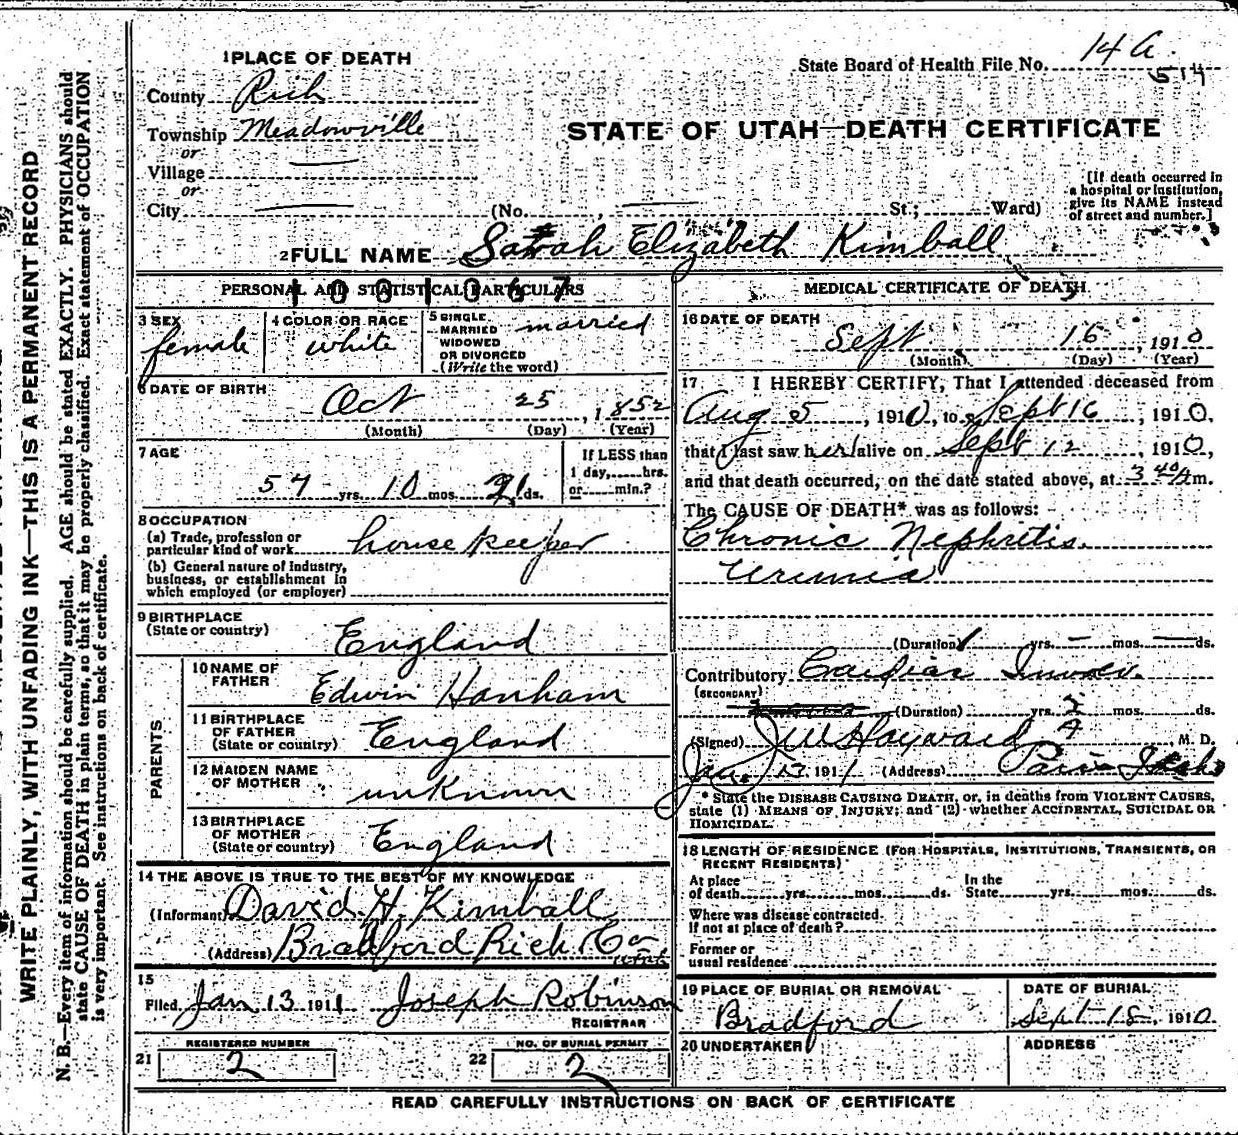 WRITE PLAINLY, WITH UNFADING INK—THIS IS A PERMANENT RECORD
N. B.—Every item of information should be carefully supplied. AGE should be stated EXACTLY. PHYSICIANS should
state CAUSE OF DEATH in plain terms, so that it may be properly classified. Exact statement of OCCUPATION
is very important. See instructions on back of certificate.
1 PLACE OF DEATH
County Rich
Township Meadowville
or
Village
or
City (No. , St.; Ward)
State Board of Health File No. 14 A
514
STATE OF UTAH—DEATH CERTIFICATE
[If death occurred in
a hospital or institution,
give its NAME instead
of street and number.]
2 FULL NAME Sarah Elizabeth Kimball
PERSONAL AND STATISTICAL PARTICULARS
1001067
3 SEX
female
4 COLOR OR RACE
white
5 SINGLE
MARRIED
WIDOWED
OR DIVORCED
(Write the word)
married
6 DATE OF BIRTH
Oct 25, 1852
(Month) (Day) (Year)
7 AGE
57 yrs. 10 mos. 21 ds.
If LESS than
1 day, hrs.
or min.?
8 OCCUPATION
(a) Trade, profession or
particular kind of work house keeper
(b) General nature of Industry,
business, or establishment in
which employed (or employer)
9 BIRTHPLACE
(State or country) England
PARENTS
10 NAME OF
FATHER Edwin Hanham
11 BIRTHPLACE
OF FATHER
(State or country) England
12 MAIDEN NAME
OF MOTHER unknown
13 BIRTHPLACE
OF MOTHER
(State or country) England
14 THE ABOVE IS TRUE TO THE BEST OF MY KNOWLEDGE
(Informant) David H. Kimball
(Address) Bradford Rich Co
Utah
15
Filed Jan 13 1911 Joseph Robinson
REGISTRAR
21 REGISTERED NUMBER
2
22 NO. OF BURIAL PERMIT
2
MEDICAL CERTIFICATE OF DEATH
16 DATE OF DEATH
Sept 16, 1910
(Month) (Day) (Year)
17. I HEREBY CERTIFY, That I attended deceased from
Aug 5, 1910, to Sept 16, 1910.
that I last saw her alive on Sept 12, 1910,
and that death occurred, on the date stated above, at 3 40 A m.
The CAUSE OF DEATH* was as follows:
Chronic Nephritis.
Uremia
(Duration) 1 yrs. — mos. — ds.
Contributory Cardiac
(SECONDARY)
(Duration) yrs. 2 mos. ds.
(Signed) J W Hayward M. D.
Jan 13 1911 (Address) Paris Idaho
* State the DISEASE CAUSING DEATH, or, in deaths from VIOLENT CAUSES,
state (1) MEANS OF INJURY; and (2) whether ACCIDENTAL, SUICIDAL OR
HOMICIDAL.
18 LENGTH OF RESIDENCE (FOR HOSPITALS, INSTITUTIONS, TRANSIENTS, OR
RECENT RESIDENTS)
At place
of death yrs. mos. ds.
In the
State yrs. mos. ds.
Where was disease contracted.
If not at place of death?
Former or
usual residence
19 PLACE OF BURIAL OR REMOVAL
Bradford
DATE OF BURIAL
Sept 18, 1910
20 UNDERTAKER
ADDRESS
READ CAREFULLY INSTRUCTIONS ON BACK OF CERTIFICATE